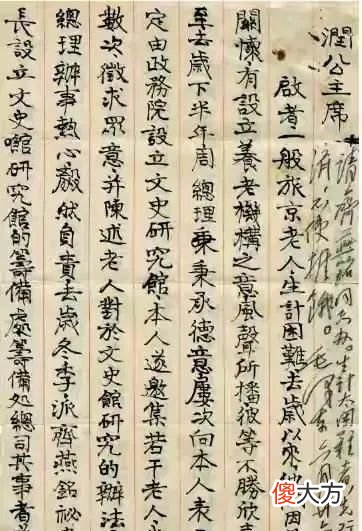 潤公主席
請齊燕銘同志办。生計太困難者先
濟,不使挨餓。毛澤东 六月廿
啟者一般旅京老人生計困難去歲以來
關懷有設立養老機構之意風聲所播彼等不勝欣
至去歲下半年周總理秉秉承德意屢次向本人表
定由政務院設立文史研究館本人遂邀集若干老人
數次徵求眾意并陳述老人對於文史館研究的辦法
總理辦事熱心毅然自責去歲冬季派齊燕銘祕
長設立文史館研究館的籌備處籌備處總司其事者
傻大方